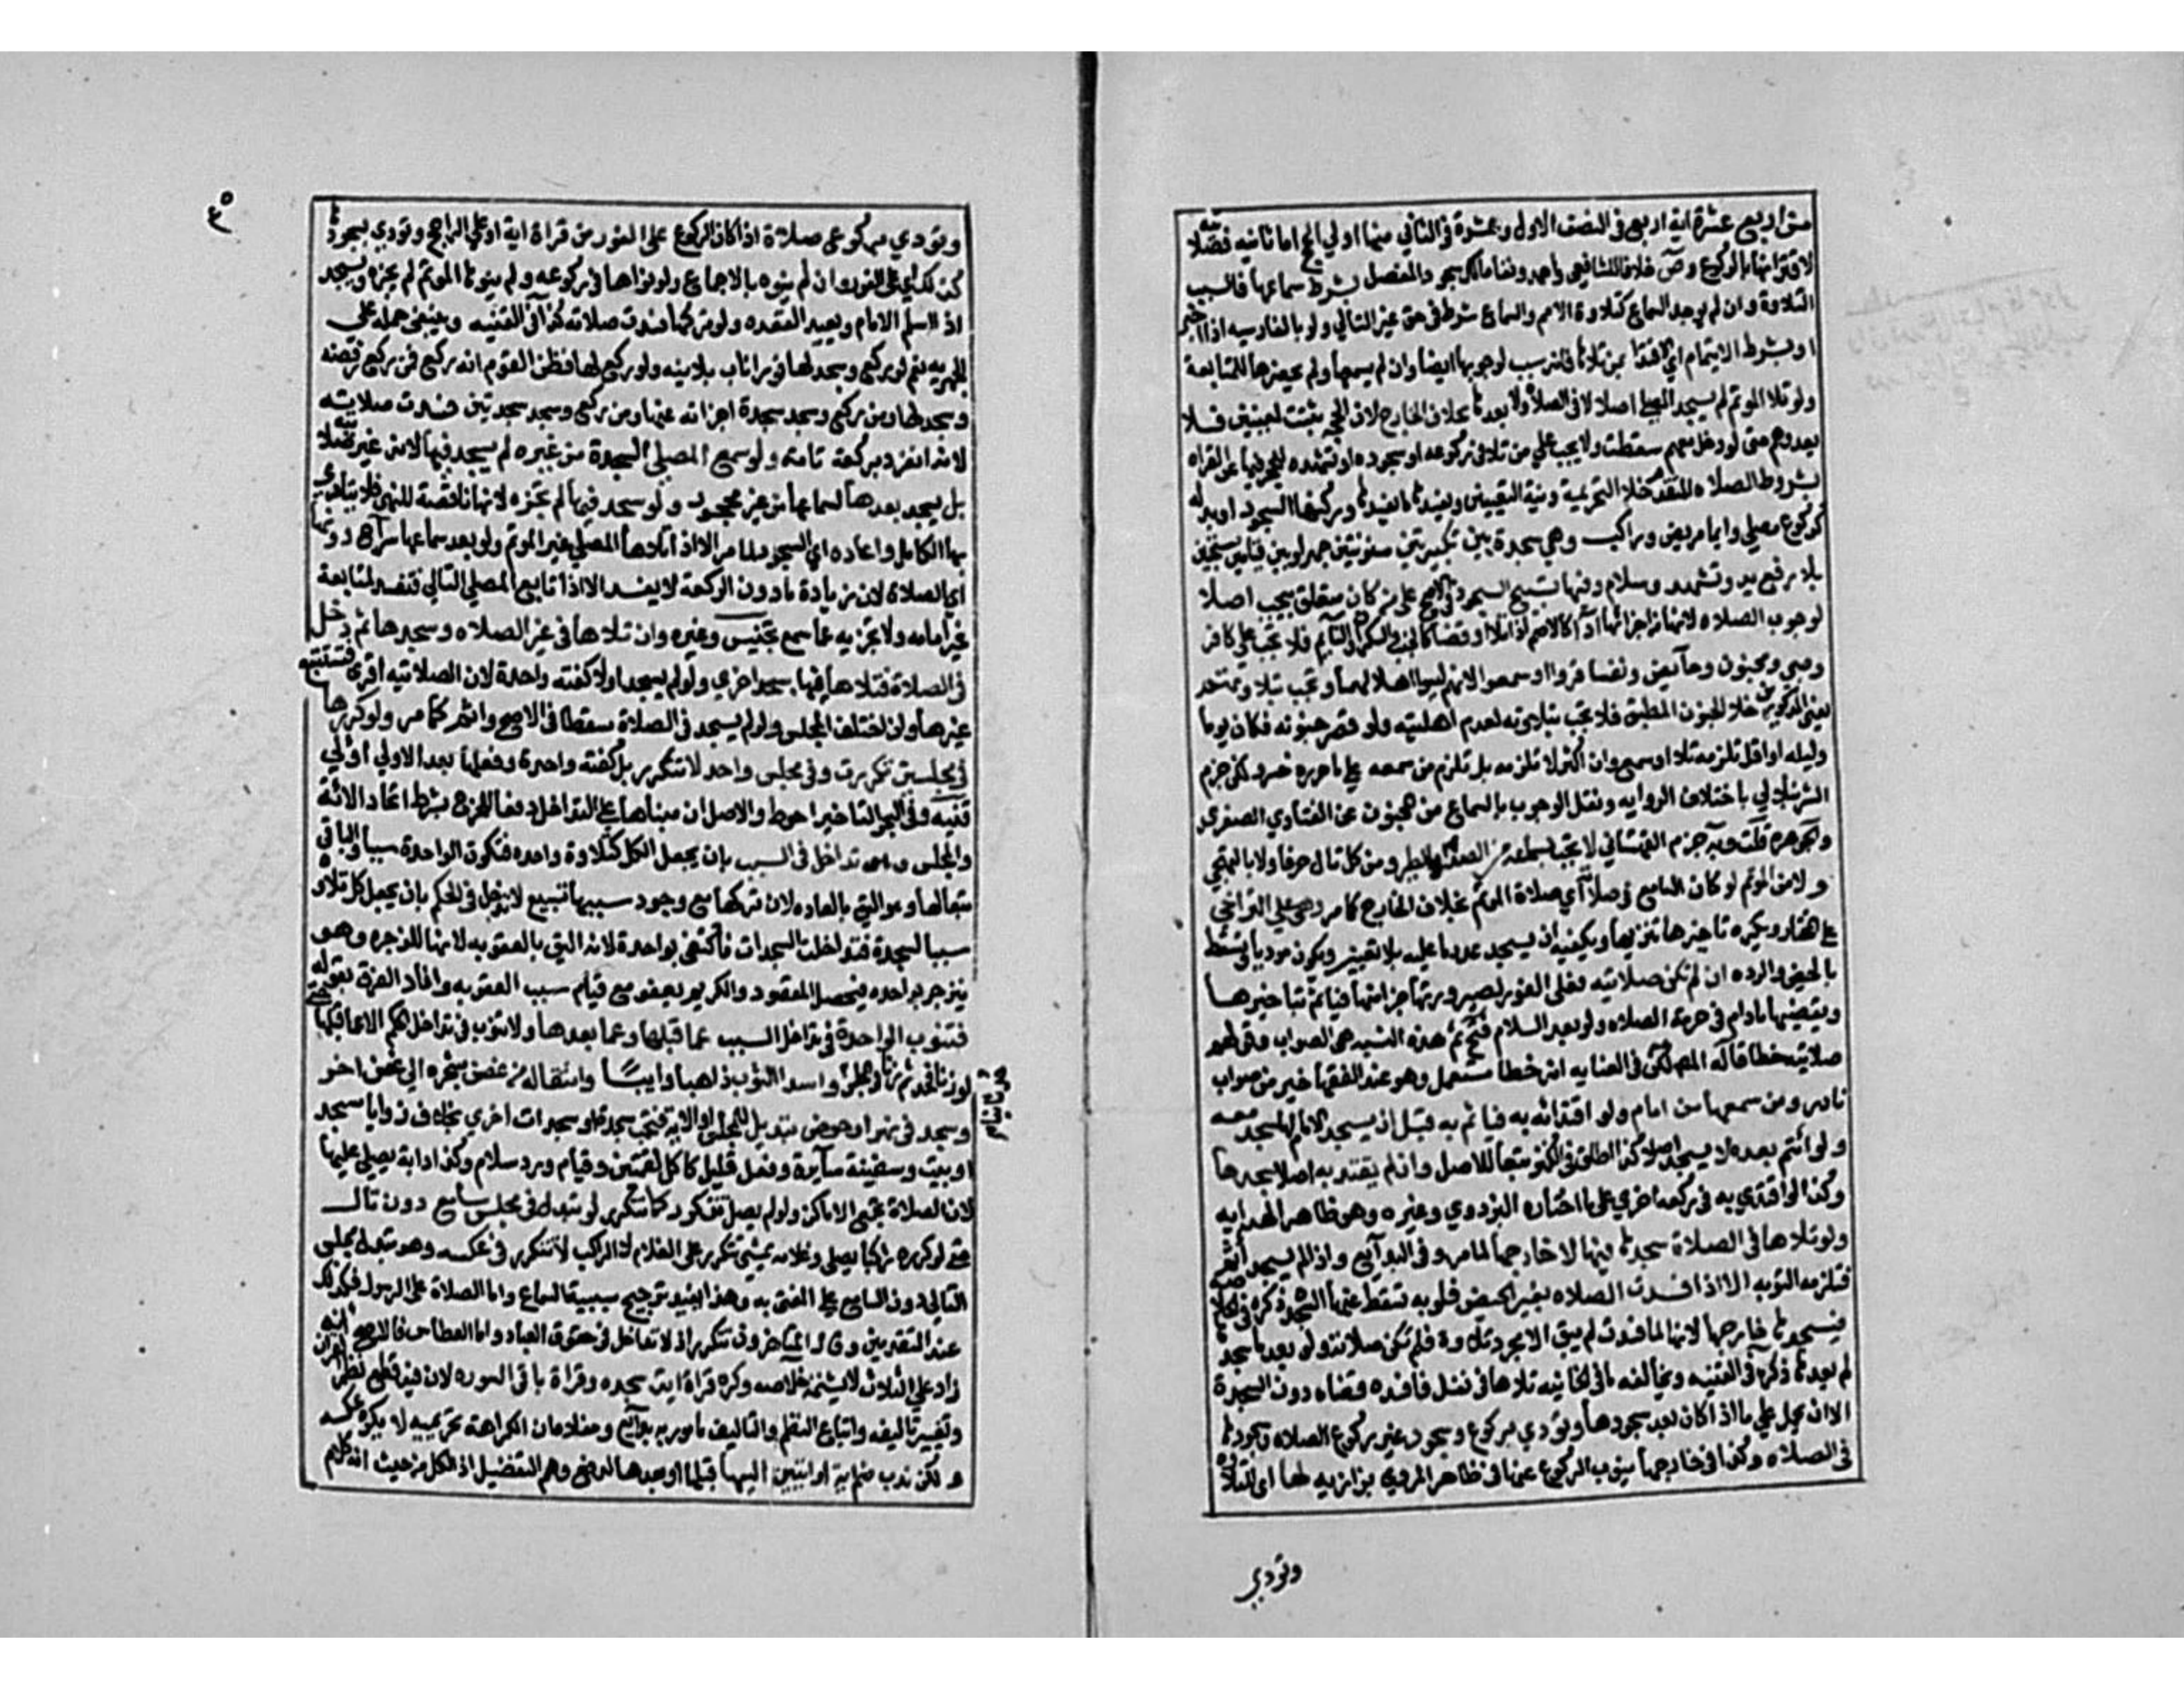 من اربع عشرة اية اربع في النصف الاول وعشرة في الثاني منها اولي الحج اما ثانيه فصلاتيه
لاقترانها بالركوع وص خلافا للشافعي واحمد ونفا مالك سجود المفصل بشرط سماعها فالسبب
التلاوة وان لم يوجد السماع كتلاوة الاصم والسماع شرط في حق غير التالي ولو بالفارسيه اذا اخبر
او بشرط الايتمام اي الاقتدا بمن تلاها فانه سبب لوجوبها ايضا وان لم يسمعها ولم يحضرها للمتابعة
ولو تلا الموتم لم يسجد المصلي اصلا لا في الصلاة ولا بعدها بخلاف الخارج لان الحجر ثبت لمعينين فلا
يعدوهم حتى لو دخل معهم سقطت ولا يجب علي من تلا في ركوعه او سجوده او تشهده للحجر فيها عن القراه
بشروط الصلاه المتقدمة خلا التحريمة ونية التعيين ويفسدها ما يفسدها وركنها السجود او بدله
كركوع مصلي وايما مريض وراكب وهي سجدة بين تكبيرتين مسنونتين جهرا وبين قيامين مستحبين
بلا رفع يد وتشهد وسلام وفيها تسبيح السجود في الاصح على من كان متعلق بيجب اهلا
لوجوب الصلاه لانها من اجزائها ادآ كالاصم اذا تلا او قضا كالجنب والسكران والنآيم فلا تجب علي كافر
وصبي ومجنون وحآيض ونفسا قروا او سمعوا لانهم ليسوا اهلا لها وتجب بتلاوتهم
يعني المذكورين خلا المجنون المطبق فلا تجب بتلاوته لعدم اهليته ولو قصر جنونه فكان يوما
وليله او اقل تلزمه تلا او سمع وان اكثر لا تلزمه بل تلزم من سمعه علي ما حرره خسرو لكن جزم
الشرنبلالي باختلاف الروايه ونقل الوجوب بالسماع من مجنون عن الفتاوي الصغرى
والجوهره قلت وبه جزم القهستاني لا تجب بسماعه من الصدا والطير ومن كل تال حرفا ولا بالتهجي
ولا من الموتم لو كان السامع في صلاته اي صلاة الموتم بخلاف الخارج كما مر وهي علي التراخي
علي المختار ويكره تاخيرها تنزيها ويكفيه ان يسجد عدد ما عليه بلا تعيين ويكون موديا وتسقط
بالحيض والرده ان لم تكن صلاتيه فعلى الفور لصيرورتها جزا منها فياثم بتاخيرها
ويقضيها مادام في حرمة الصلاه ولو بعد السلام فتح ثم هذه النسبه هي الصواب وقولهم
صلاتيه خطا قاله المصـ لكن في العنايه انه خطا مستعمل وهو عند الفقها خير من صواب
نادر ومن سمعها من امام ولو باقتدائه به فائتم به قبل ان يسجد الامام لها سجد معه
ولو ائتم بعده لا يسجد اصلا كذا اطلق في الكنز تبعا للاصل وان لم يقتد به اصلا سجدها
وكذا لو اقتدي به في ركعة اخري علي ما اختاره البزدوي وغيره وهو ظاهر الهدايه
ولو تلاها في الصلاة سجدها فيها لا خارجها لما مر وفي البدآيع واذا لم يسجد اثم
فتلزمه التوبه الا اذا فسدت الصلاه بغير الحيض فلو به تسقط عنها السجدة ذكره في الخلاصه
فيسجدها خارجها لانها لما فسدت لم يبق الا مجرد تلاوة فلم تكن صلاتيه ولو بعدما سجدها
لم يعدها ذكره في القنيه ويخالفه ما في الخانيه تلاها في نفل فافسده قضاه دون السجدة
الا ان يحمل علي ما اذا كان بعد سجودها وتودي بركوع وسجود غير ركوع الصلاه وسجودها
في الصلاه وكذا في خارجها ينوب الركوع عنها في ظاهر المروي بزازيه لها اي للتلاوة
وتودي
٣٥
وتودي بركوع صلاة اذا كان الركوع على الفور من قراة اية او علي الراجح وتودي بسجودها
كذلك اي على الفور وان لم ينوه بالاجماع ولو نواها في ركوعه ولم ينوها الموتم لم يجزه ويسجد
اذا سلم الامام ويعيد القعده ولو تركها فسدت صلاته كذا في القنيه وينبغي حمله علي
الجهريه نعم لو ركع وسجد لها فورا ناب بلا نيه ولو ركع لها فظن القوم انه ركع فمن ركع رفضه
وسجد لها ومن ركع وسجد سجدة اجزاته عنها ومن ركع وسجد سجدتين فسدت صلاته
لانه انفرد بركعة تامة ولو سمع المصلي السجدة من غيره لم يسجد فيها لانها غير صلاتيه
بل يسجد بعدها لسماعها من غير محجور ولو سجد فيها لم تجزه لانها ناقصة للنهي فلا يتادي
بها الكامل واعاده اي السجود لما مر الا اذا تلاها المصلي غير الموتم ولو بعد سماعها سراج دونها
اي الصلاة لان زيادة ما دون الركعة لا يفسد الا اذا تابع المصلي التالي فتفسد لمتابعة
غير امامه ولا تجزيه عما سمع تجنيس وغيره وان تلاها في غير الصلاه وسجدها ثم دخل
في الصلاة فتلاها فيها سجد اخري ولو لم يسجد اولا كفته واحدة لان الصلاتيه اقوى فتستتبع
غيرها وان اختلف المجلس ولو لم يسجد في الصلاة سقطتا في الاصح واثم كما مر ولو كررها
في مجلسين تكررت وفي مجلس واحد لا تتكرر بل كفته واحدة وفعلها بعد الاولي اولي
قنيه وفي البحر التاخير احوط والاصل ان مبناها علي التداخل دفعا للحرج بشرط اتحاد الائة
والمجلس وهو تداخل في السبب بان يجعل الكل كتلاوة واحده فتكون الواحدة سببا والباقي
تبعا لها وهو اليق بالعباده لان تركها مع وجود سببها شنيع لا تداخل في الحكم بان يجعل كل تلاوة
سببا لسجدة فتداخلت السجدات فاكتفي بواحدة لانه اليق بالعقوبه لانها للزجر وهو
ينزجر بواحده فيحصل المقصود والكريم يعفو مع قيام سبب العقوبه وافاد الفرق بقوله
فتنوب الواحدة في تداخل السبب عما قبلها وعما بعدها ولا تنوب في تداخل الحكم الا عما قبلها
لو زنا فحد ثم زنا في المجلس واسدا الثوب ذاهبا وايبًا وانتقاله من غصن شجره الي غصن اخر
وسبح في نهر او حوض تبديل للمجلس او الاية فتجب سجدة او سجدات اخري بخلاف زوايا مسجد
او بيت وسفينة سآيرة وفعل قليل كاكل لقمتين وقيام ورد سلام وكذا دابة يصلي عليها
لان الصلاة تجمع الاماكن ولو لم يصل تتكرر كما تتكرر لو تبدل مجلس سامع دون تال
حتي لو كررها راكبا يصلي وغلامه يمشي تتكرر على الغلام لا الراكب لا تتكرر في عكسه وهو تبدل مجلس
التالي دون السامع علي المفتي به وهذا يفيد ترجيح سببية السماع واما الصلاة على الرسول فكذلك
عند المتقدمين وقال المتاخرون تتكرر اذ لا تداخل في حقوق العباد واما العطاس فالاصح انه
زاد علي الثلاث لا يشمته خلاصه وكره قراة اية سجده وقراة باقي السوره لان فيه قطع نظم القران
وتغيير تاليفه واتباع النظم والتاليف مامور به بدآيع ومفاده ان الكراهة تحريميه لا يكره عكسه
ولكن ندب ضم اية او ايتين اليها قبلها او بعدها لدفع وهم التفضيل اذ الكل من حيث انه كلام